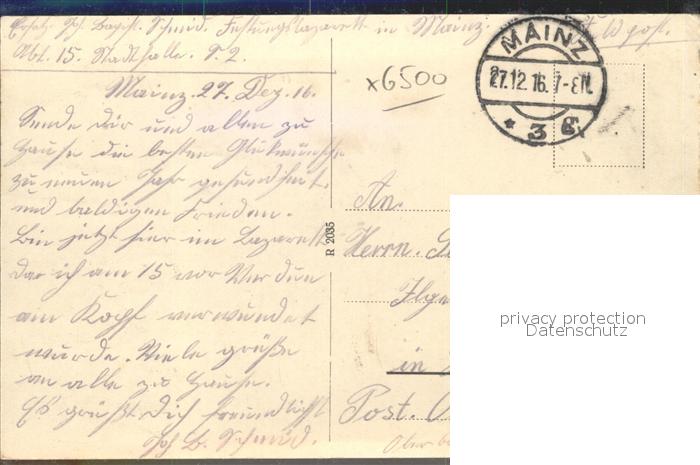 Ersatz Schmid. Festungslazarett in Mainz. Feldpost.
Abt. 15. Stadthalle. S. 2.
Mainz. 27. Dez. 16.
Sende dir und allen zu
Hause die besten Glükwünsche
zu neuen Jahr gesundheit.
und baldigen Frieden.
Bin jetzt hier im Lazarett
da ich am 15 vor Verdun
am Kopf verwundet
wurde. Viele grüße
an alle zu Hause.
Es grüßt Dich freundlichst
Joh. B. Schmid.
x6500
MAINZ
27.12.16. 7-8N.
* 3
R 2035
An.
Herrn.
in
Post.
privacy protection
Datenschutz